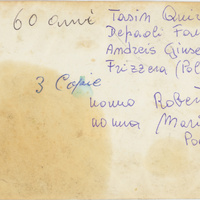 60 anni Tasin Quir
Depaoli Fau
Andreis Giuse
Frizzera (Pol
3 Copie
nonno Rober
nonna Mari
Po